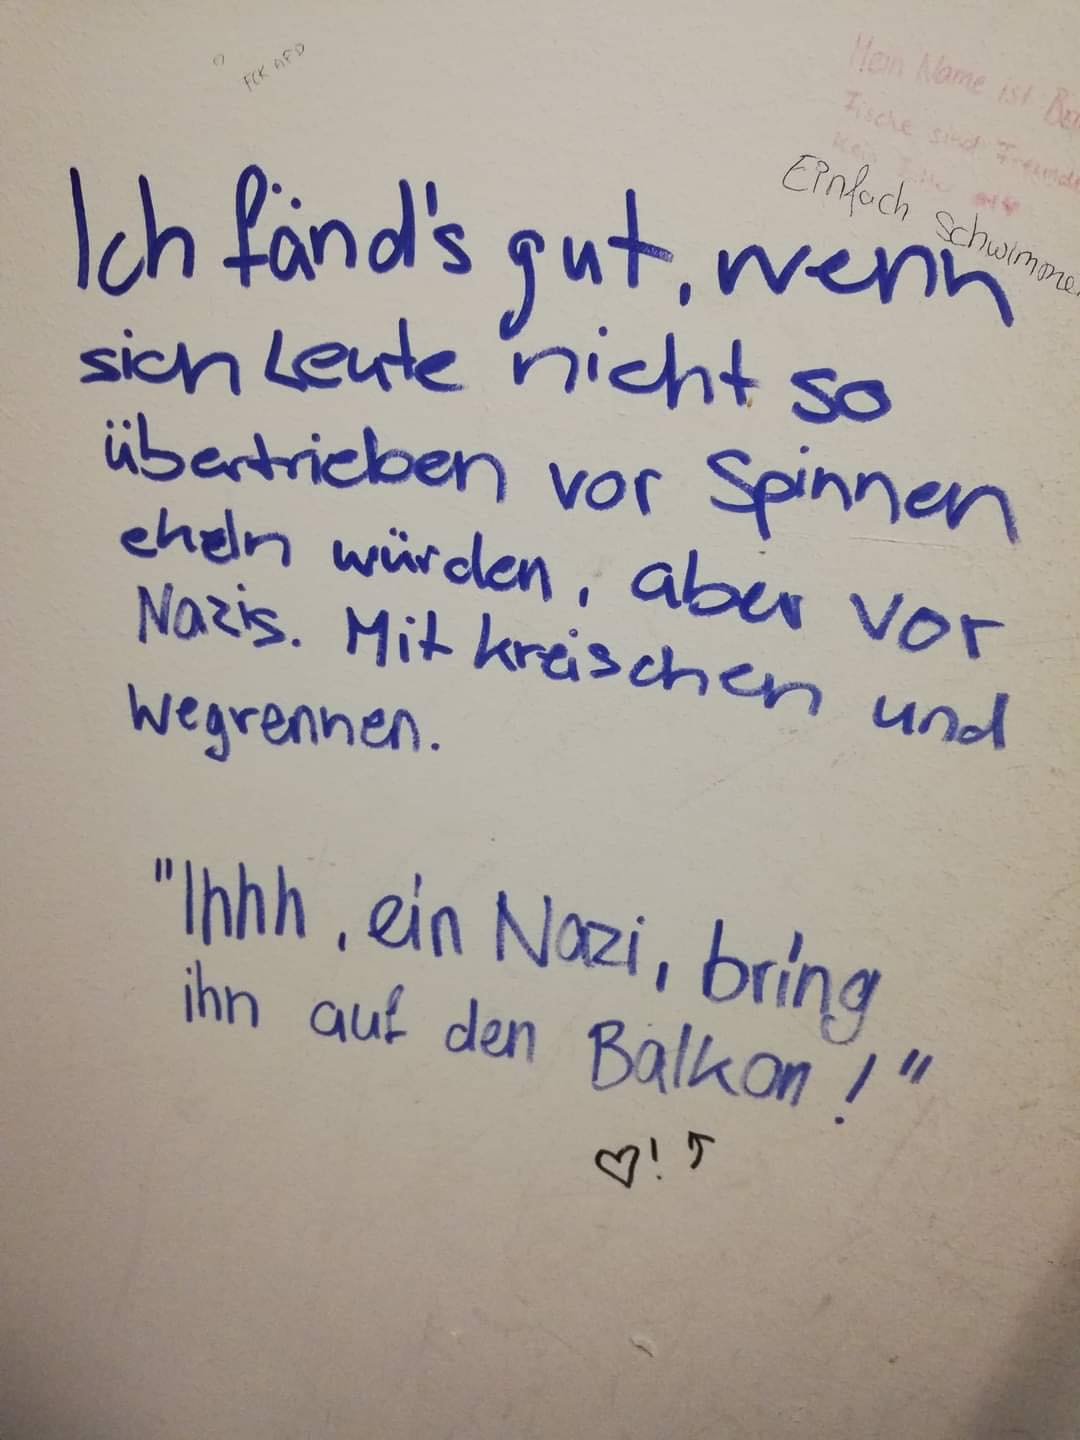 FCK AFD
Mein Name ist
Fische sind Freunde
Einfach schwimmen
Ich fänd's gut, wenn
sich Leute nicht so
übertrieben vor Spinnen
ekeln würden, aber vor
Nazis. Mit kreischen und
wegrennen.
"Ihhh, ein Nazi, bring
ihn auf den Balkon!"
♡! ↑